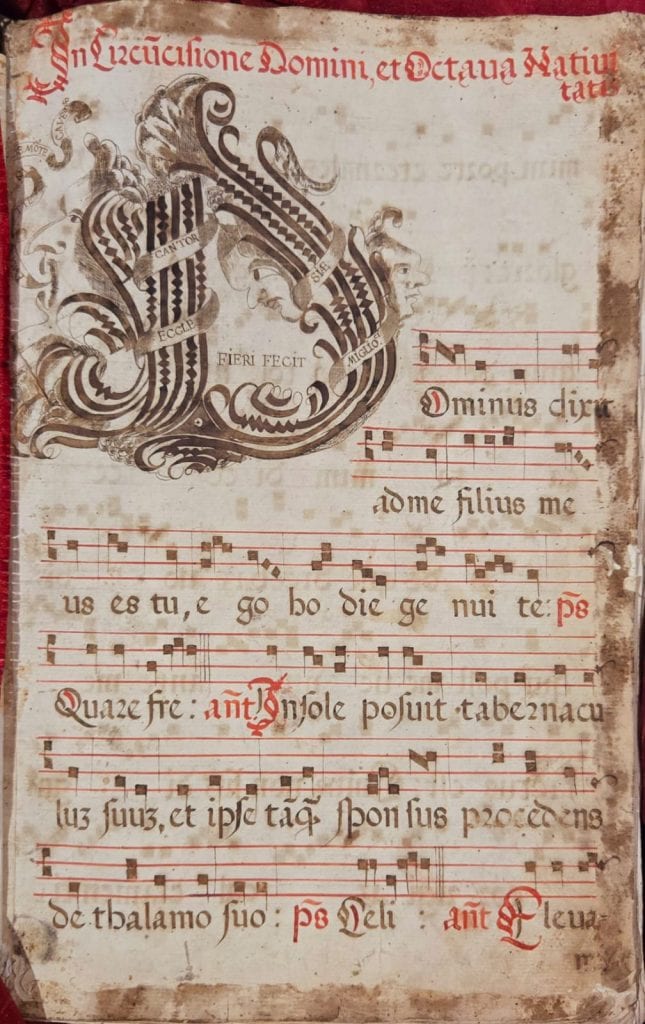 In Circūcisione Domini, et Octaua Natiui
tatis
CANTOR
ECCLE
SIÆ
FIERI FECIT
MIGLIO
Ominus dixit
ad me filius me
us es tu, e go ho die ge nui te: p̄s
Quare fre: añt In sole posuit tabernacu
luz suuz, et ipse tāq̄ sponsus procedens
de thalamo suo: p̄s Celi: añt Eleua-